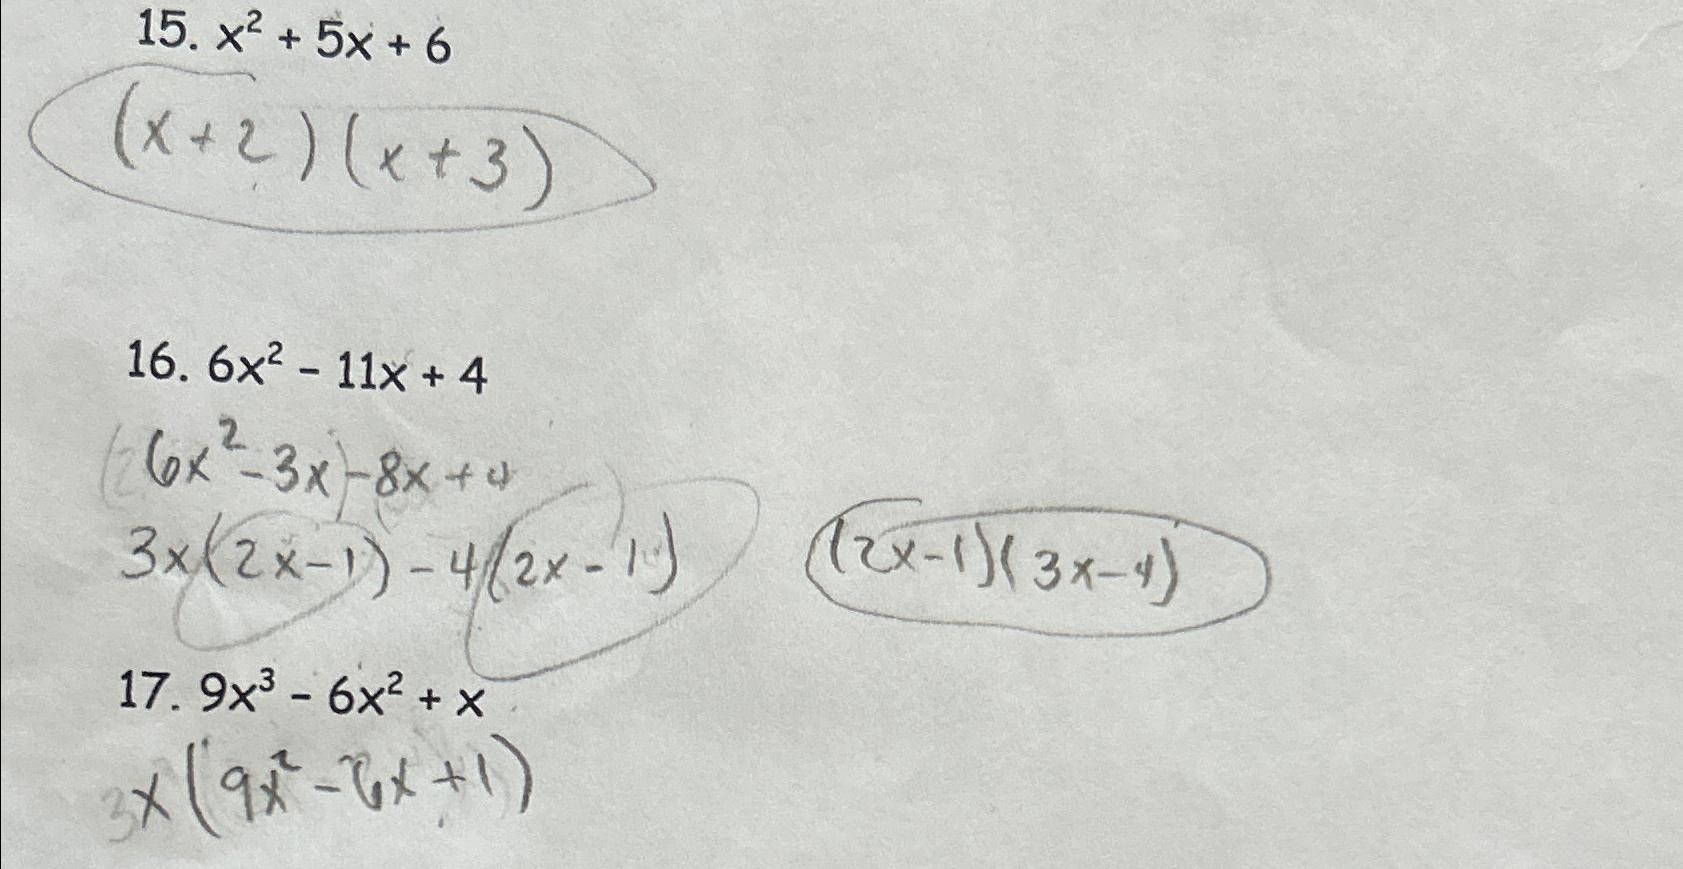 15. x² + 5x + 6
(x + 2)(x + 3)
16. 6x² - 11x + 4
(6x² - 3x) - 8x + 4
3x(2x - 1) - 4(2x - 1) (2x - 1)(3x - 4)
17. 9x³ - 6x² + x
x(9x² - 6x + 1)